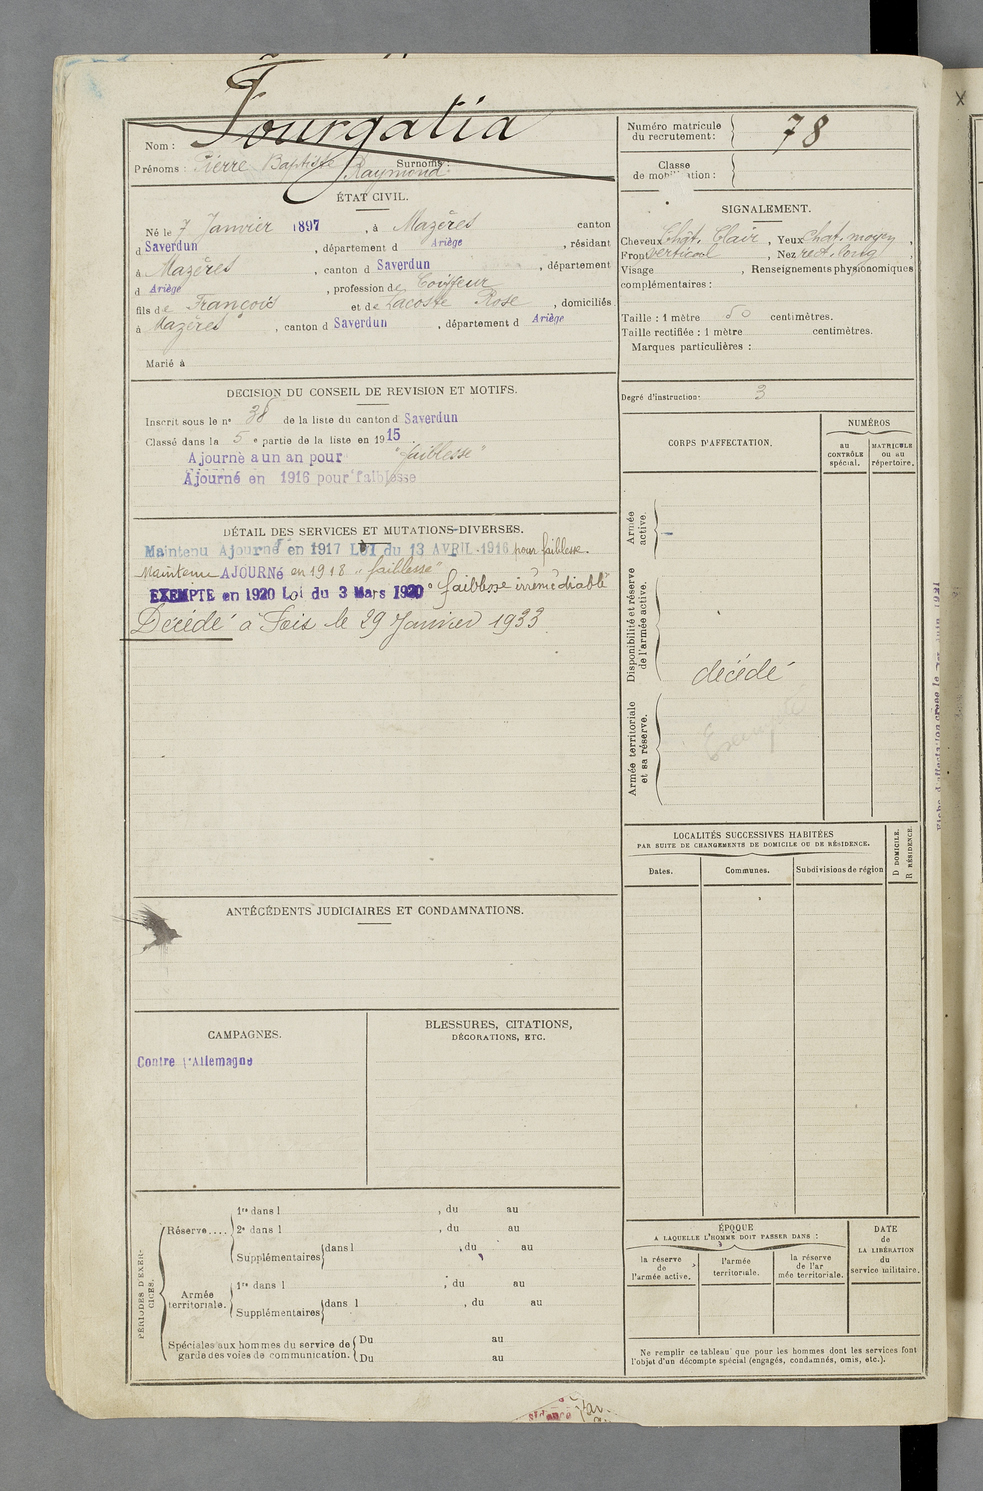 Nom : Fourgatia
Prénoms : Pierre Baptiste Raymond Surnoms :
ÉTAT CIVIL.
Né le 7 Janvier 1897, à Mazères canton
d Saverdun, département d Ariège, résidant
à Mazères, canton d Saverdun, département
d Ariège, profession de Coiffeur
fils de François et de Lacoste Rose, domiciliés
à Mazères, canton d Saverdun, département d Ariège
Marié à
DECISION DU CONSEIL DE REVISION ET MOTIFS.
Inscrit sous le n° 38 de la liste du canton d Saverdun
Classé dans la 5e partie de la liste en 1915
Ajourné a un an pour "faiblesse"
Ajourné en 1916 pour faiblesse
DÉTAIL DES SERVICES ET MUTATIONS DIVERSES.
Maintenu Ajourné en 1917 LOI du 13 AVRIL 1916 pour faiblesse.
Maintenu AJOURNé en 1918 "faiblesse"
EXEMPTE en 1920 Loi du 3 Mars 1920 faiblesse irrémédiable
Décédé à Foix le 29 Janvier 1933
ANTÉCÉDENTS JUDICIAIRES ET CONDAMNATIONS.
CAMPAGNES.
Contre l'Allemagne
BLESSURES, CITATIONS,
DÉCORATIONS, ETC.
PÉRIODES D'EXERCICES.
Réserve....
1re dans l , du au
2e dans l , du au
Supplémentaires dans l , du au
Armée
territoriale.
1re dans l , du au
Supplémentaires dans l , du au
Spéciales aux hommes du service de
garde des voies de communication.
Du au
Du au
Numéro matricule
du recrutement : 78
Classe
de mobilisation :
SIGNALEMENT.
Cheveux Chât. Clair, Yeux chat. moyen,
Front vertical, Nez rect. long,
Visage , Renseignements physionomiques
complémentaires :
Taille : 1 mètre 50 centimètres.
Taille rectifiée : 1 mètre centimètres.
Marques particulières :
Degré d'instruction : 3
CORPS D'AFFECTATION.
NUMÉROS
au
CONTRÔLE
spécial.
MATRICULE
ou au
répertoire.
Armée
active.
Disponibilité et réserve
de l'armée active.
décédé
Exempté
Armée territoriale
et sa réserve.
LOCALITÉS SUCCESSIVES HABITÉES
PAR SUITE DE CHANGEMENTS DE DOMICILE OU DE RÉSIDENCE.
Dates.
Communes.
Subdivisions de région
D DOMICILE.
R RÉSIDENCE.
ÉPOQUE
A LAQUELLE L'HOMME DOIT PASSER DANS :
la réserve
de
l'armée active.
l'armée
territoriale.
la réserve
de l'ar
mée territoriale.
DATE
de
LA LIBÉRATION
du
service militaire.
Ne remplir ce tableau que pour les hommes dont les services font
l'objet d'un décompte spécial (engagés, condamnés, omis, etc.).